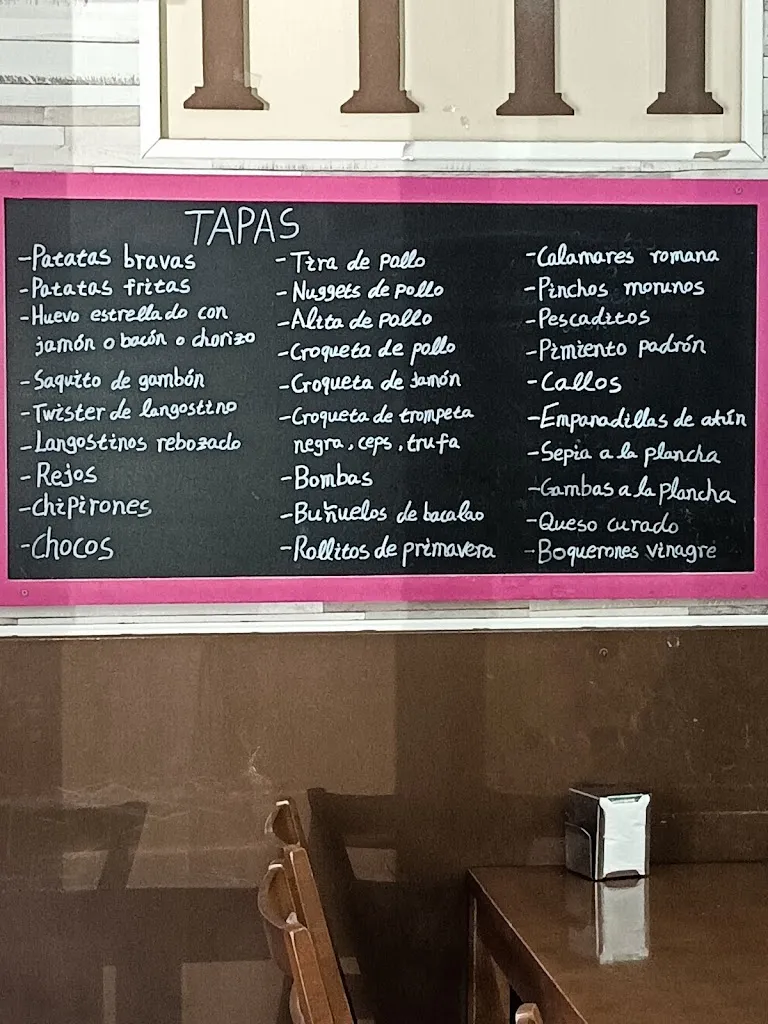 TAPAS
-Patatas bravas
-Patatas fritas
-Huevo estrellado con
jamón o bacón o chorizo
-Saquito de gambón
-Twister de langostino
-Langostinos rebozado
-Rejos
-chipirones
-chocos
-Tira de pollo
-Nuggets de pollo
-Alita de pollo
-Croqueta de pollo
-Croqueta de jamón
-Croqueta de trompeta
negra, ceps, trufa
-Bombas
-Buñuelos de bacalao
-Rollitos de primavera
-Calamares romana
-Pinchos morunos
-Pescaditos
-Pimiento padrón
-Callos
-Empanadillas de atún
-Sepia a la plancha
-Gambas a la plancha
-Queso curado
-Boquerones vinagre